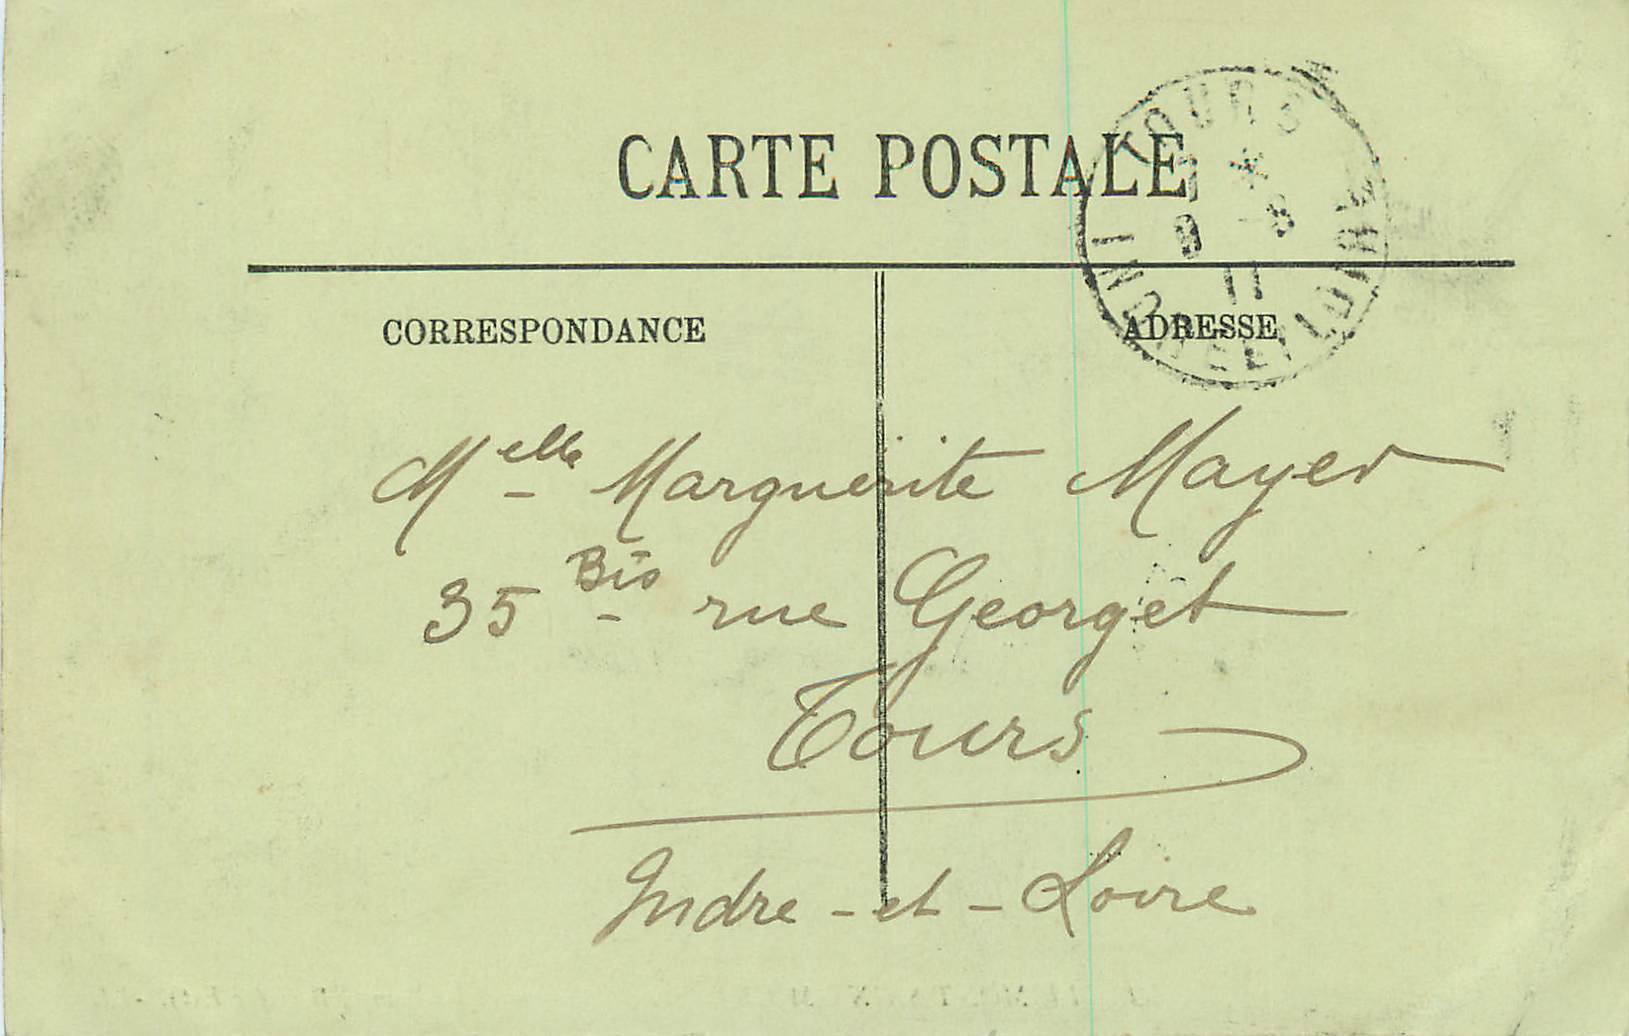 CARTE POSTALE
TOURS
INDRE-ET-LOIRE
11
CORRESPONDANCE
ADRESSE
Melle Marguerite Mayer
35 Bis rue Georget
Tours
Indre-et-Loire